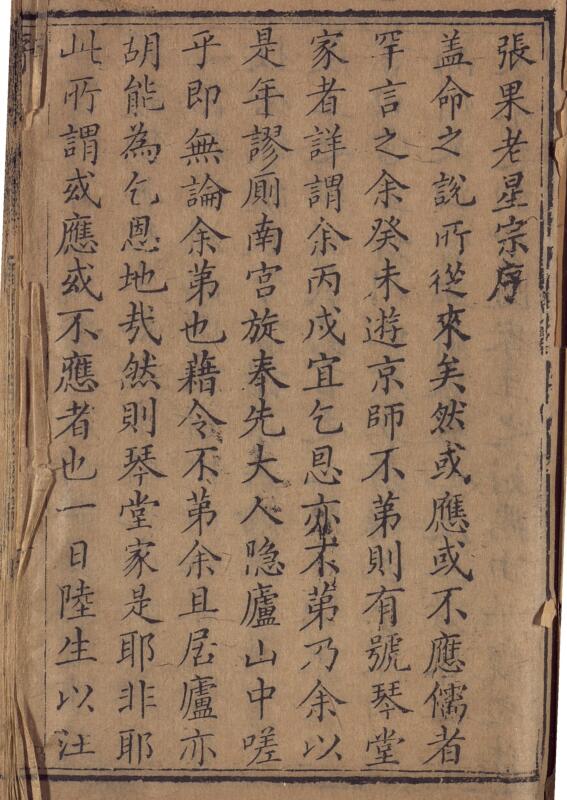 張果老星宗序
盖命之說所從來矣然或應或不應儒者
罕言之余癸未遊京師不第則有號琴堂
家者詳謂余丙戌宜乞恩亦不第乃余以
是年謬厠南宮旋奉先大人隐廬山中嗟
乎即無論余第也藉令不第余且居廬亦
胡能為乞恩地哉然則琴堂家是耶非耶
此所謂或應或不應者也一日陸生以汪